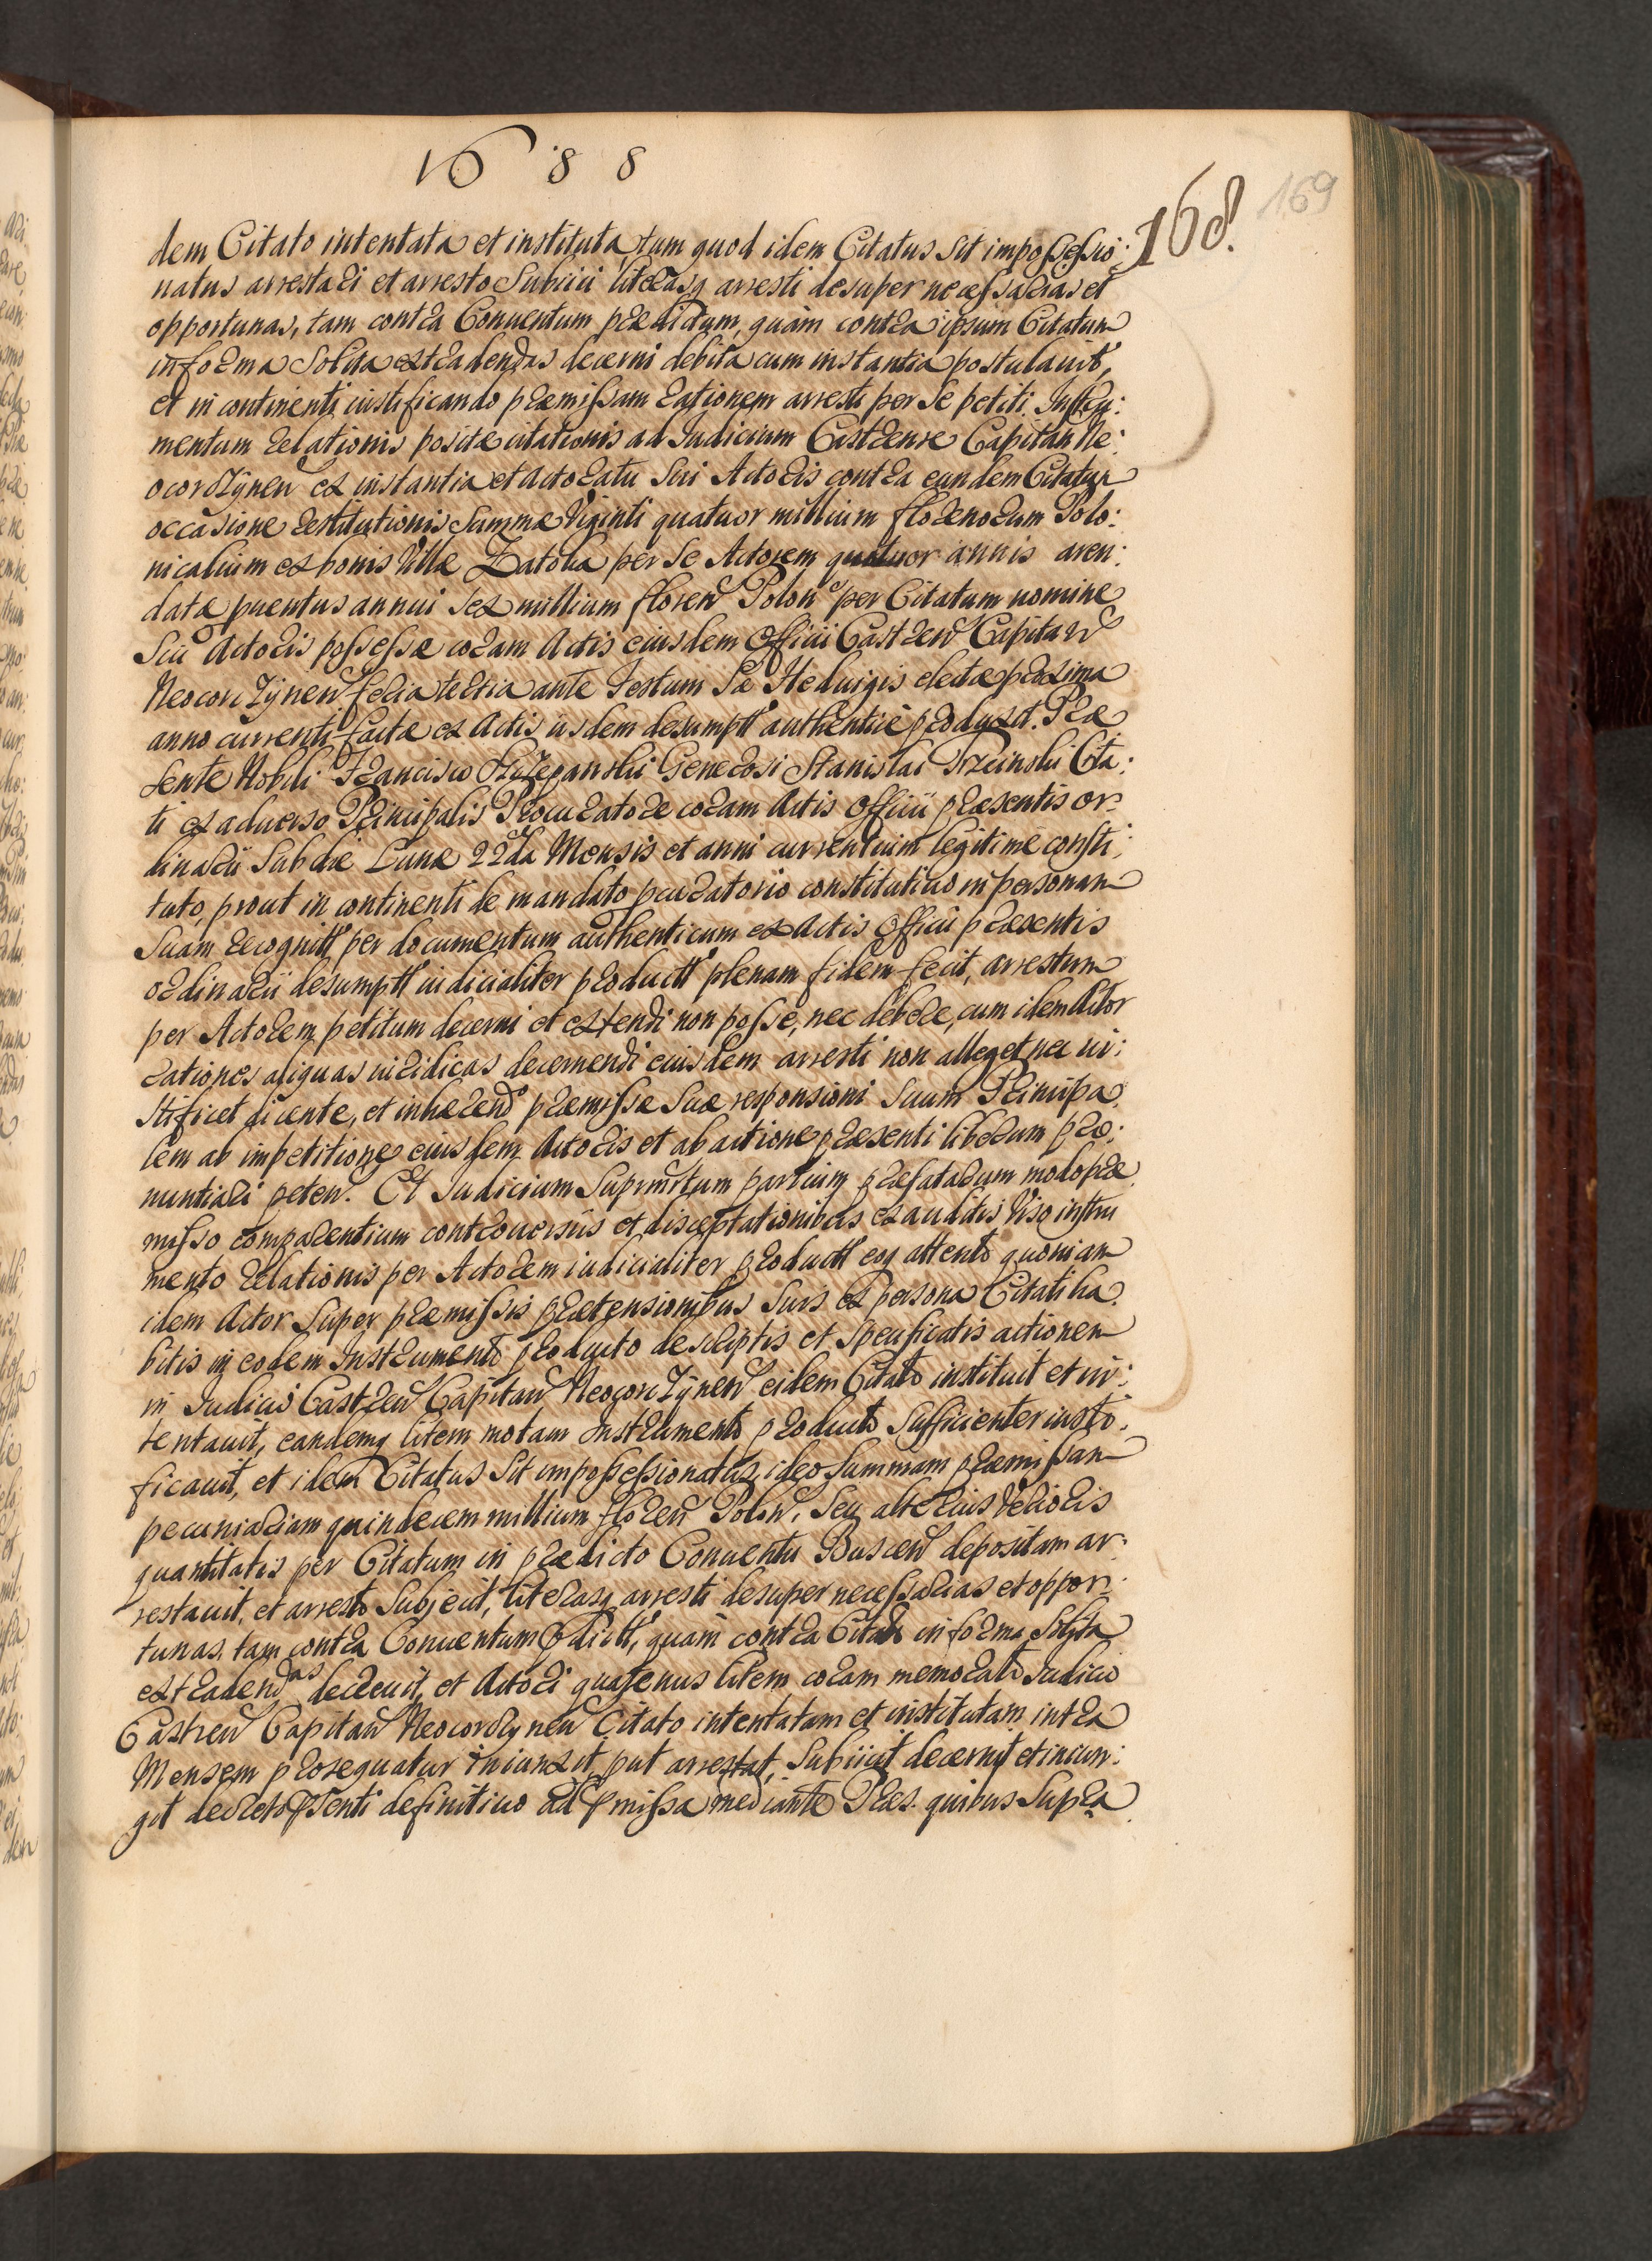 1688
168.
169
dem Citato intentata et instituta tum quod idem Citatus sit impossessio:
natus arrestari et arresto Subiici literasq arresti desuper necessarias et
opportunas, tam contra Conuentum praedictum, quàm contra ipsum Citatum
in forma Solita extradendas decerni debita cum instantia postulauit,
et in continenti iustificando praemissam rationem arresti per Se petiti. Instru:
mentum relationis positae citationis ad Iudicium Castrense Capitan Ne:
ocorczÿnen ex instantia et Actoratu Sui Actoris contra eundem Citatum
occasione restitutionis Summae Viginti quatuor millium florenorum Polo:
nicalium ex bonis Villae Zatola per Se Actorem quatuor annis aren:
datae puentus annui Sex millium floren Polon per Citatum nomine
Sui Actoris possessae coram Actis eiusdem Officii Castren Capitan
Neocorczÿnen feria tertia ante Festum Sae Heduigis electae proxima
anno currenti factae ex Actis iisdem desumptt authenticè produxit. Prae
sente Nobili Francisco Generosi Stanislai Cita:
ti ex aduerso Principalis Procuratore coram Actis Officii praesentis or
dinarii Sub die Lunae 22da Mensis et anni currentium legitimè consti:
tuto, prout in continenti de mandato pcuratorio constitutiuo in personam
Suam recognitt per documentum authenticum ex Actis Officii praesentis
ordinarii desumptt iudicialiter productt plenam fidem fecit, arrestum
per Actorem petitum decerni et extendi non posse, nec debere, cum idem Actor
rationes aliquas iuridicas decernendi eiusdem arresti non alleget nec iu:
stificet dicente, et inhaerend praemissae Suae responsioni Suum Principa:
lem ab impetitione eiusdem Actoris et ab actione praesenti liberum pro:
nuntiari peten. Et Iudicium Suprascriptum partium praefatarum modo prae
misso comparentium controuersiis et disceptationibus exauditis Viso instru
mento relationis per Actorem iudicialiter productt eoq attento quoniam
idem Actor Super praemissis praetensionibus Suis ex persona Citati ha:
bitis in eodem Instrumento producto descriptis et Specificatis actionem
in Iudicio Castren Capitan Neocorczÿnen eidem Citato instituit et in:
tentauit, eandemq litem motam Instrumento producto Sufficienter iusti:
ficauit, et idem Citatus Sit impossessionatus, ideo Summam praemissam
pecuniariam quindecem millium floren Polon, Seu alterius Verioris
quantitatis per Citatum in praedicto Conuentu Buscen depositam ar:
restauit, et arresto Subjecit, literasq arresti desuper necessarias et oppor:
tunas, tam contra Conuentum pdictt, quàm contra Citatum in forma Solita
extradendas decreuit, et Actori quatenus litem coram memorato Iudicio
Castren Capitan Neocorczynen Citato intentatam et institutam intra
Mensem prosequatur iniunxit, put arrestat, Subiicit decernit et iniun:
git decreto psenti definitiuo ad pmissa mediante Praes. quibus Supra